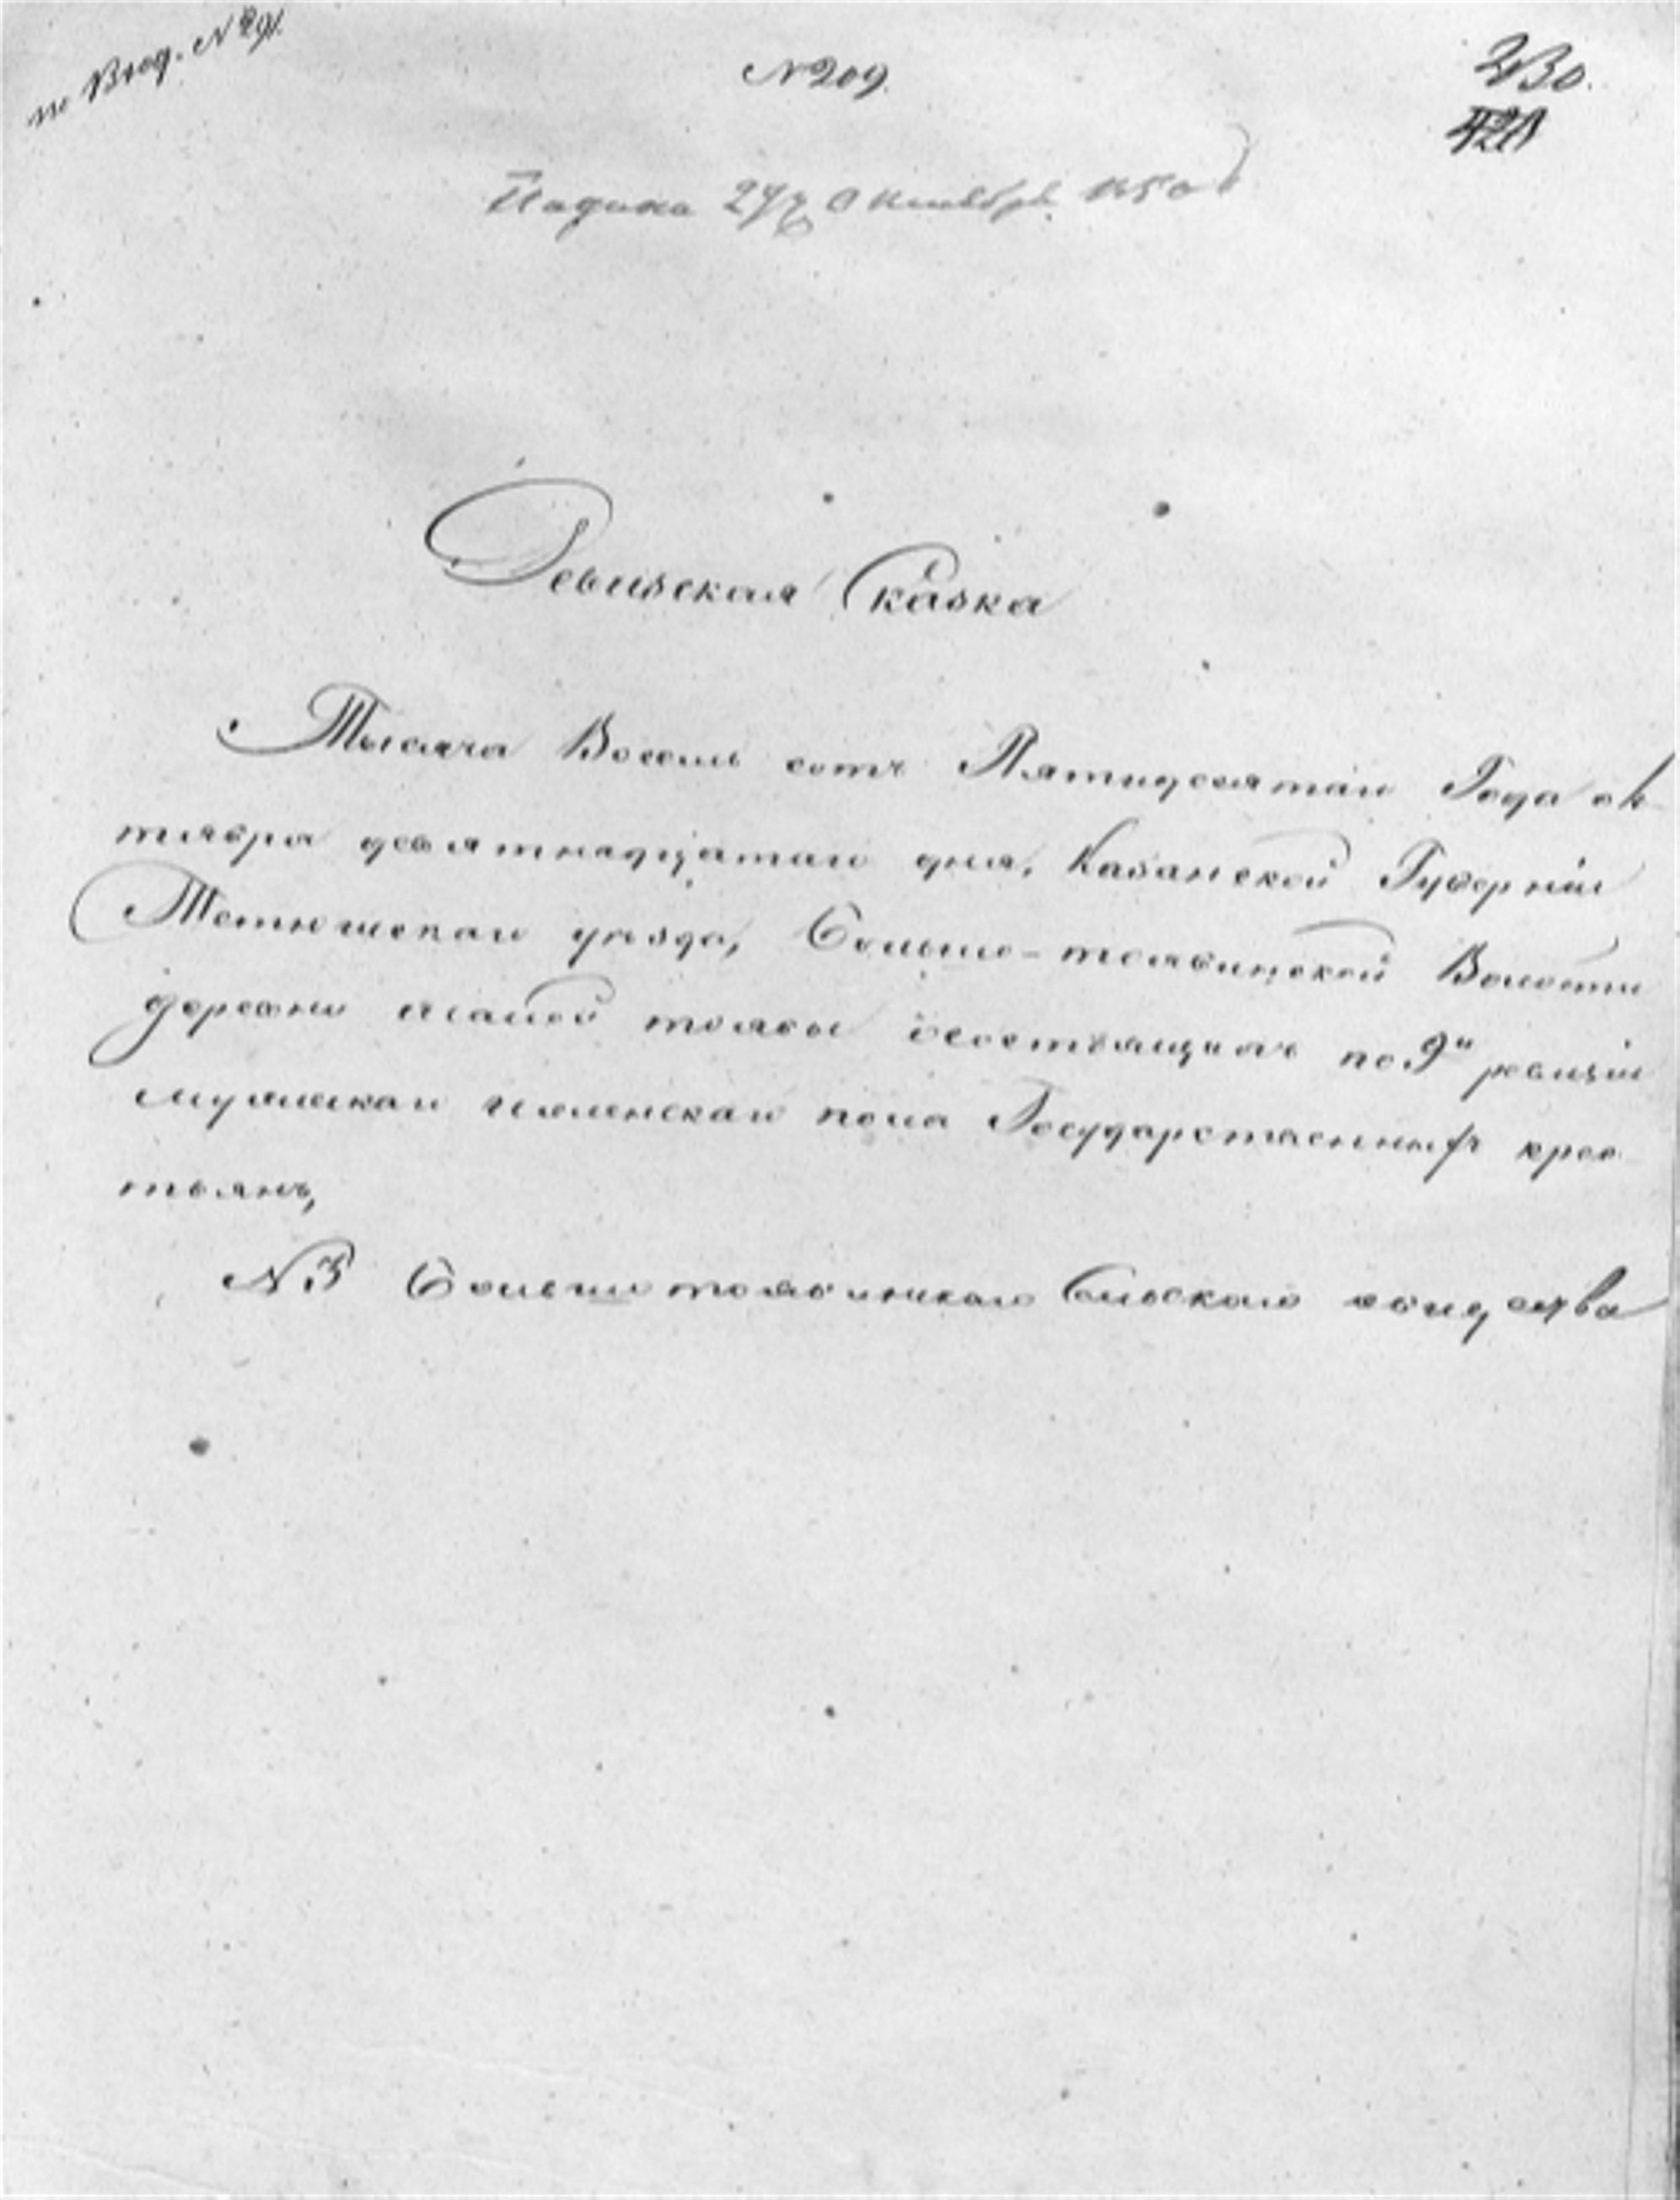 по Вход. N 291.
N 209.
230.
421
Подана 27 Октября 1850
Ревизская Сказка
Тысяча Восемь сотъ Пятидесятаго Года ок-
тября девятнадцатаго дня, Казанской Губерніи
Тетюшскаго уезда, Больше-тоябинской Волости
деревни малой тоябы о состоящихъ по 9й ревизіи
мужескаго и женскаго пола Государственныхъ крес
тьянъ,
N 3 Больше тоябинскаго Сельскаго общества